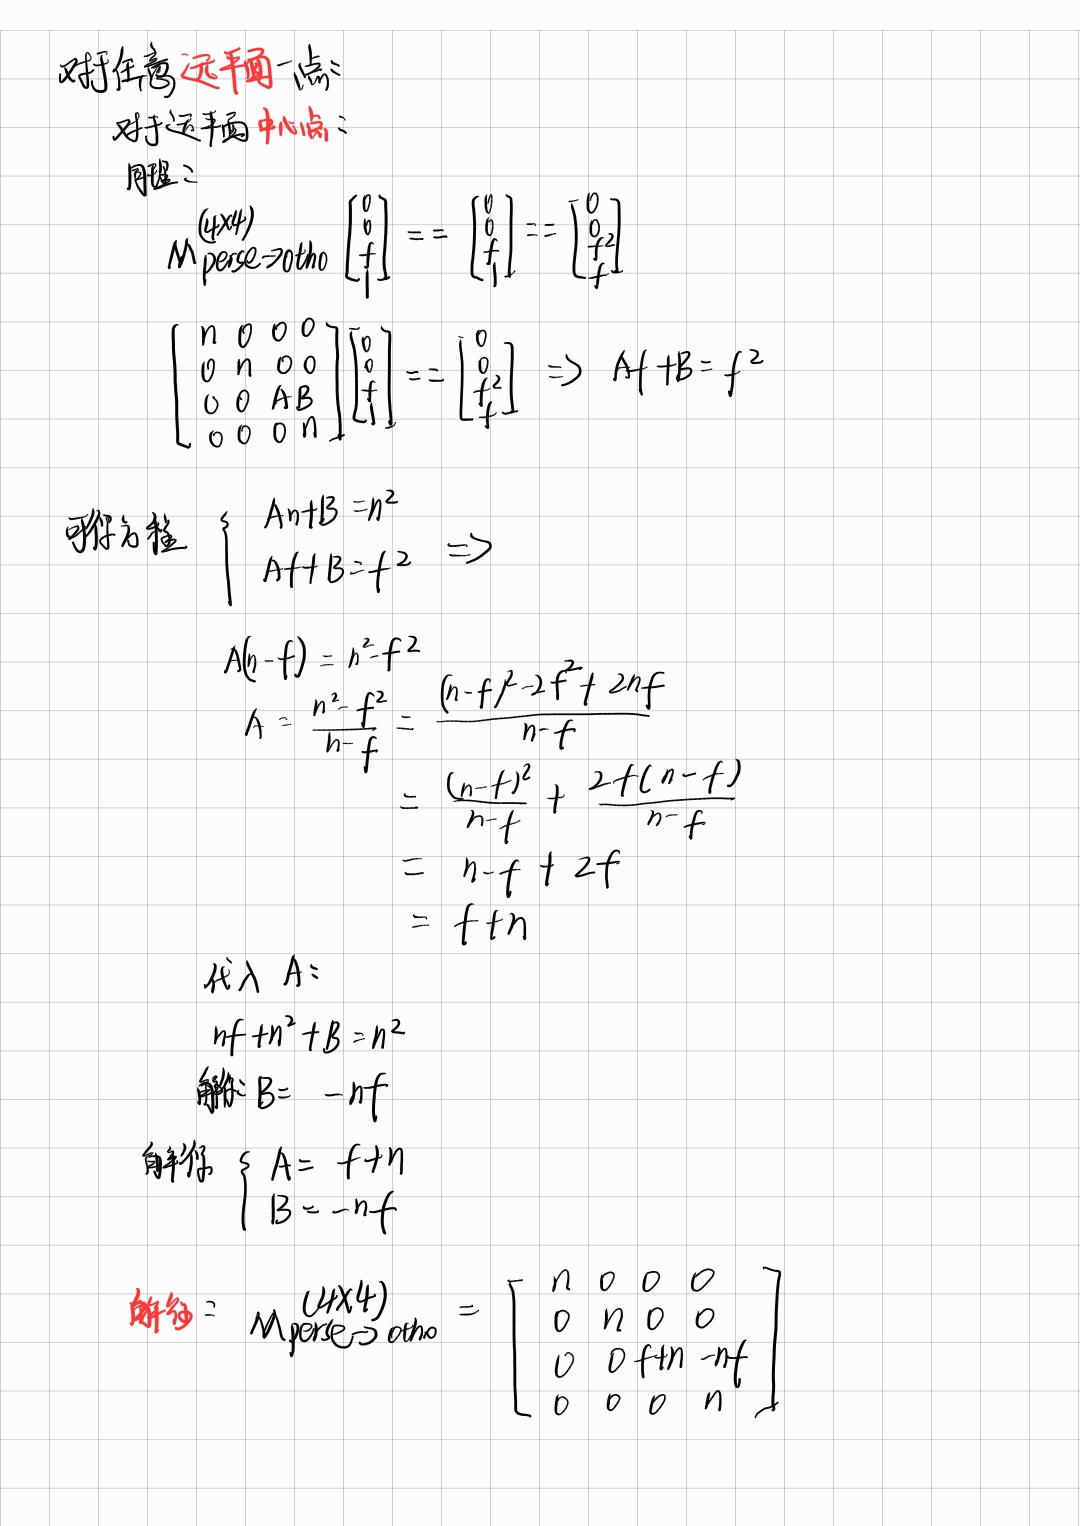 对于任意远平面一点:
对于远平面中心点:
同理:
M perse->otho (4×4) [0 0 f 1] == [0 0 f 1] == [0 0 f² f]
[n 0 0 0
0 n 0 0
0 0 A B
0 0 0 n] [0 0 f 1] == [0 0 f² f] => Af+B=f²
可得方程 { An+B=n²
Af+B=f² =>
A(n-f) = n²-f²
A = (n²-f²)/(n-f) = ((n-f)²-2f²+2nf)/(n-f)
= (n-f)²/(n-f) + 2f(n-f)/(n-f)
= n-f+2f
= f+n
代入A:
nf+n²+B=n²
解得: B= -nf
解得 { A= f+n
B= -nf
解得: M perse->otho (4×4) = [n 0 0 0
0 n 0 0
0 0 f+n -nf
0 0 0 n]